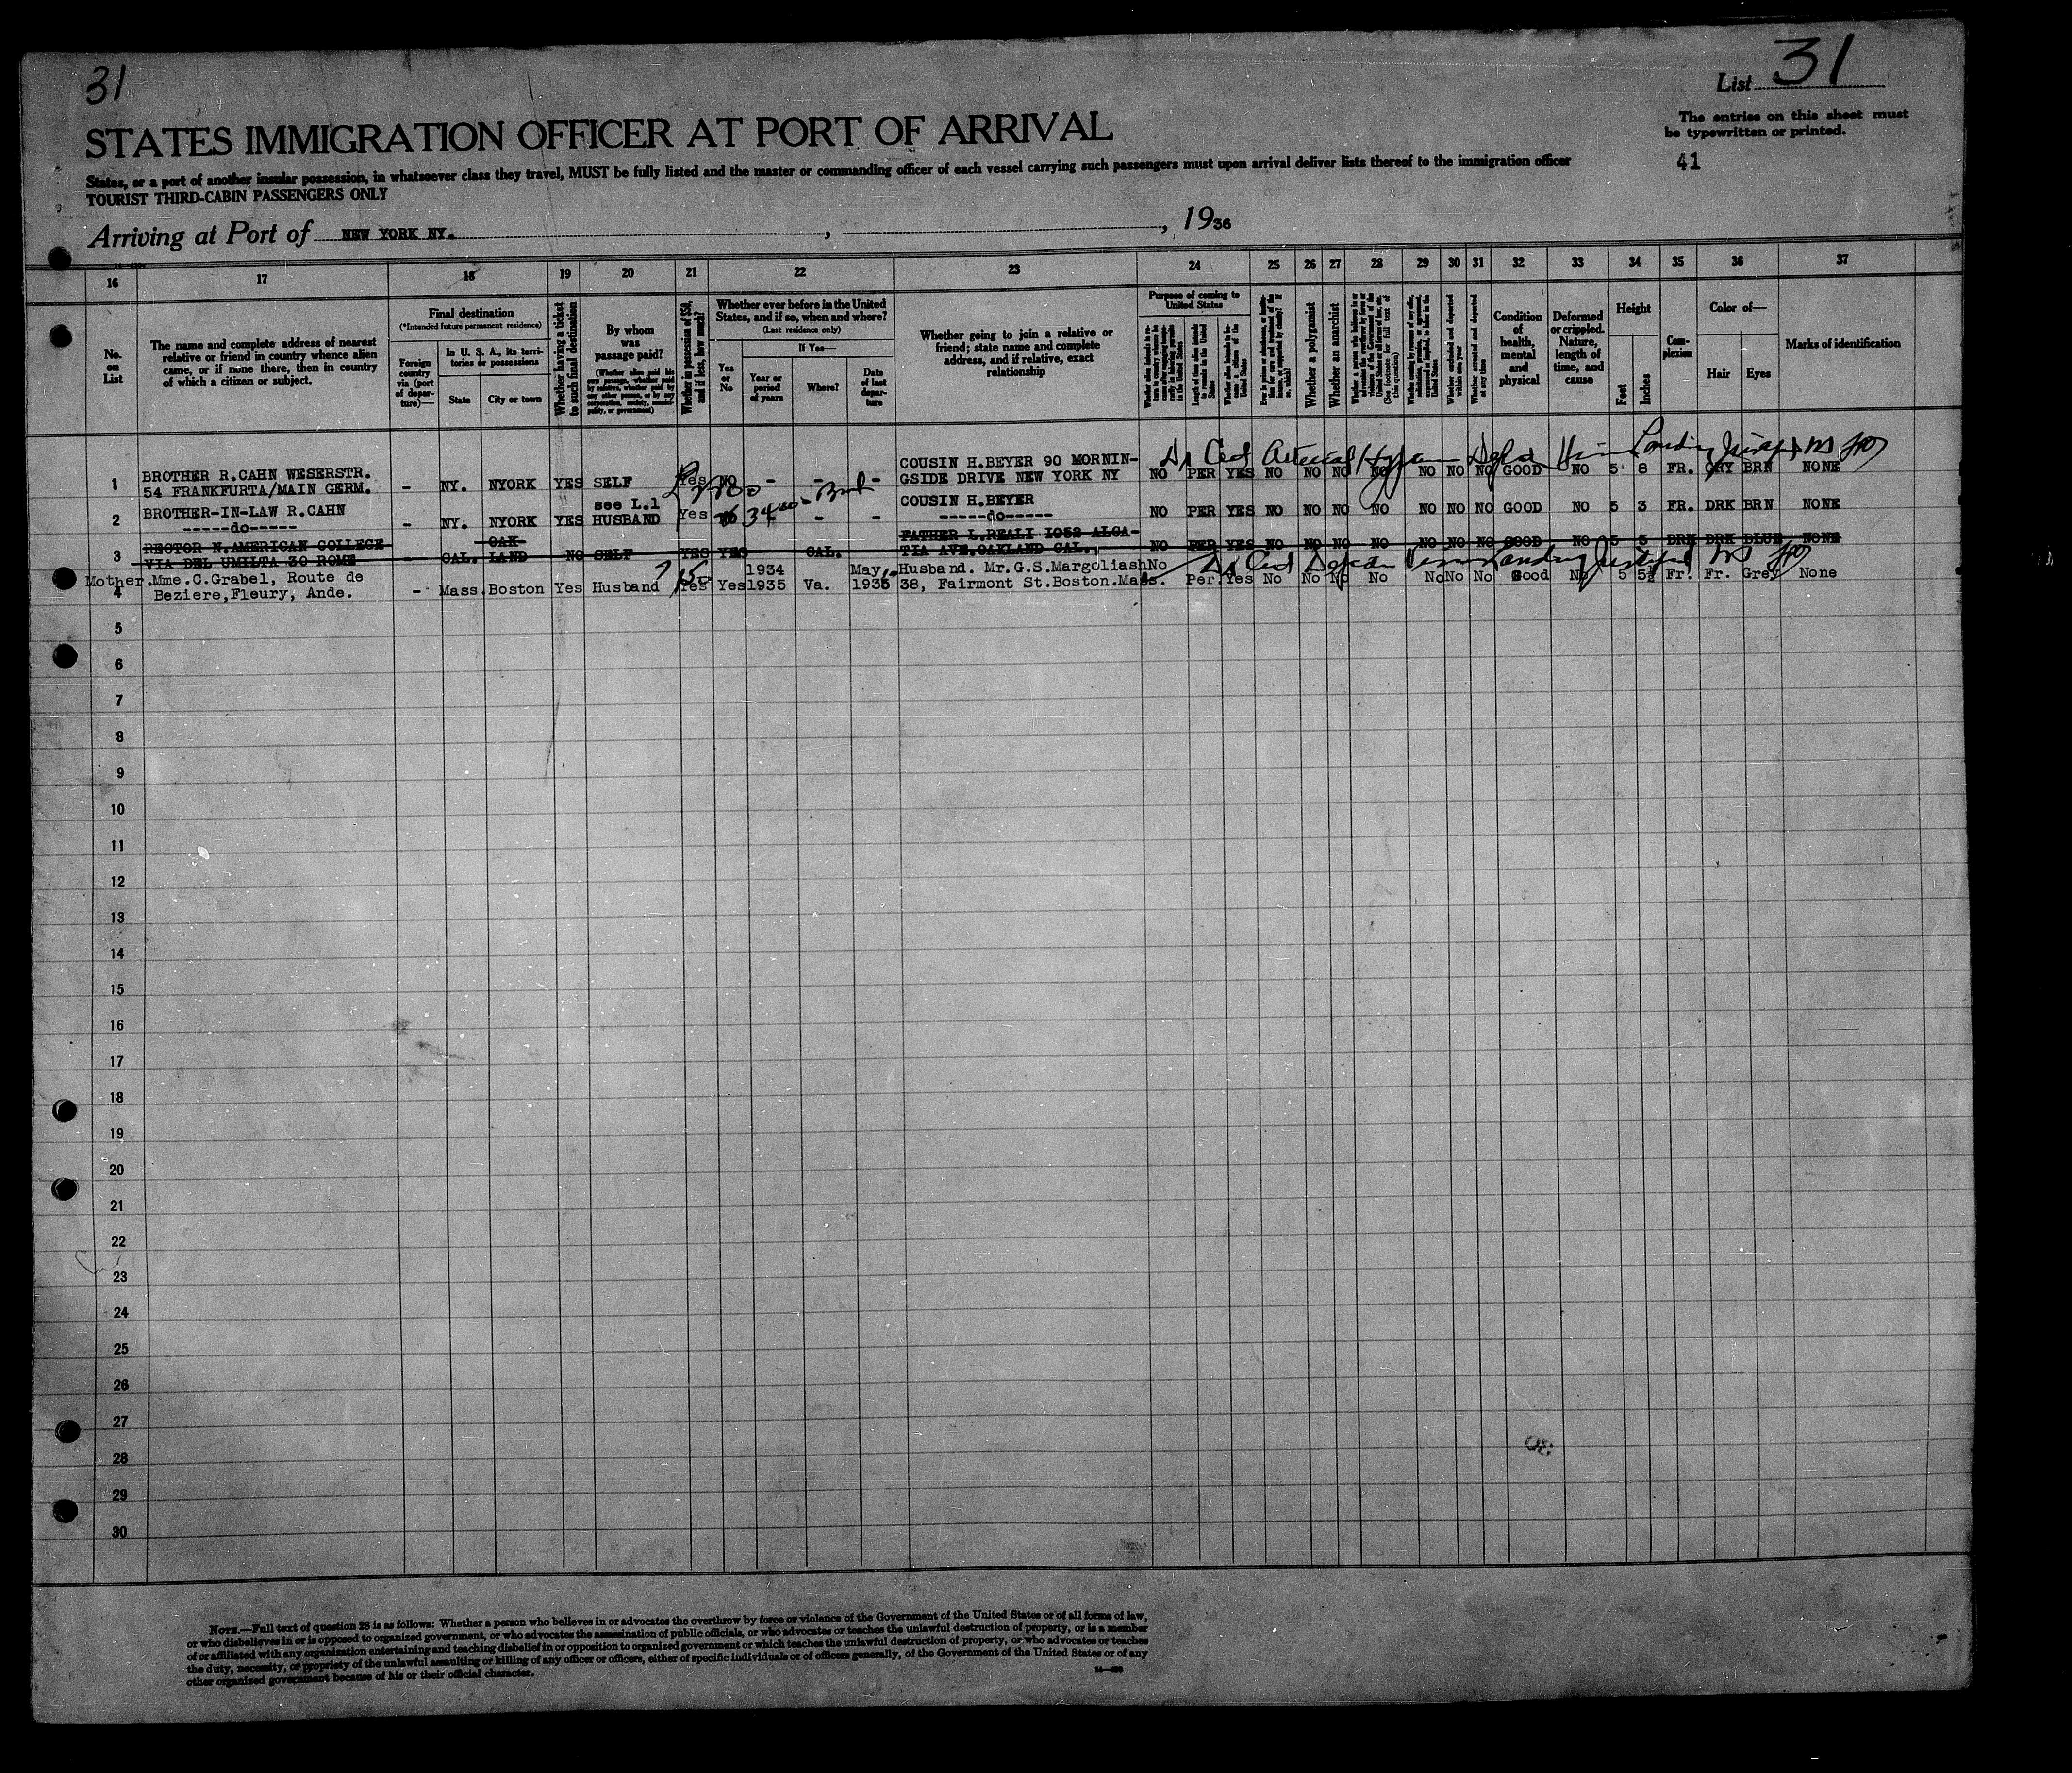 31
List 31
The entries on this sheet must
be typewritten or printed.
41
STATES IMMIGRATION OFFICER AT PORT OF ARRIVAL
States, or a port of another insular possession, in whatsoever class they travel, MUST be fully listed and the master or commanding officer of each vessel carrying such passengers must upon arrival deliver lists thereof to the immigration officer
TOURIST THIRD-CABIN PASSENGERS ONLY
Arriving at Port of NEW YORK NY. , , 1936
16 17 18 19 20 21 22 23 24 25 26 27 28 29 30 31 32 33 34 35 36 37
No.
on
List
The name and complete address of nearest
relative or friend in country whence alien
came, or if none there, then in country
of which a citizen or subject.
Final destination
(*Intended future permanent residence)
Foreign
country
via (port
of depar-
ture)—
In U. S. A., its terri-
tories or possessions
State
City or town
Whether having a ticket
to such final destination
By whom
was
passage paid?
(Whether alien paid his
own passage, whether paid
by relative, whether paid by
any other person, or by any
corporation, society, munici-
pality, or government)
Whether in possession of $50,
and if less, how much?
Whether ever before in the United
States, and if so, when and where?
(Last residence only)
Yes
or
No
If Yes—
Year or
period
of years
Where?
Date
of last
depar-
ture
Whether going to join a relative or
friend; state name and complete
address, and if relative, exact
relationship
Purpose of coming to
United States
Length of time alien intends
to remain in the United
States
Whether a polygamist
Whether an anarchist
Whether arrested and deported
at any time
Condition
of
health,
mental
and
physical
Deformed
or crippled.
Nature,
length of
time, and
cause
Height
Feet
Inches
Com-
plexion
Color of—
Hair
Eyes
Marks of identification
1 BROTHER R.CAHN WESERSTR.
54 FRANKFURTA/MAIN GERM. - NY. NYORK YES SELF Yes NO - - - COUSIN H.BEYER 90 MORNIN-
GSIDE DRIVE NEW YORK NY NO PER YES NO NO NO NO NO NO NO GOOD NO 5 8 FR. GRY BRN NONE
2 BROTHER-IN-LAW R.CAHN
-----do----- - NY. NYORK YES see L.1
HUSBAND Yes - - - COUSIN H.BEYER
-----do----- NO PER YES NO NO NO NO NO NO NO GOOD NO 5 3 FR. DRK BRN NONE
3 RECTOR N.AMERICAN COLLEGE
VIA DEL UMILTA 30 ROME - CAL. OAK-
LAND NO SELF YES YES CAL. FATHER L.REALI 1052 ALCA-
TIA AVE.OAKLAND CAL., NO PER YES NO NO NO NO NO NO NO GOOD NO 5 5 DRK DRK BLUE NONE
4 Mother.Mme.C.Grabel, Route de
Beziere,Fleury, Ande. - Mass. Boston Yes Husband Yes Yes 1934
1935 Va. May
1935 Husband. Mr.G.S.Margoliash
38, Fairmont St.Boston.Mass. No Per. Yes No No No No No No No Good No 5 5½ Fr. Fr. Grey None
5
6
7
8
9
10
11
12
13
14
15
16
17
18
19
20
21
22
23
24
25
26
27
28
29
30
30
NOTE.—Full text of question 28 is as follows: Whether a person who believes in or advocates the overthrow by force or violence of the Government of the United States or of all forms of law,
or who disbelieves in or is opposed to organized government, or who advocates the assassination of public officials, or who advocates or teaches the unlawful destruction of property, or is a member
of or affiliated with any organization entertaining and teaching disbelief in or opposition to organized government or which teaches the unlawful destruction of property, or who advocates or teaches
the duty, necessity, or propriety of the unlawful assaulting or killing of any officer or officers, either of specific individuals or of officers generally, of the Government of the United States or of any
other organized government because of his or their official character.